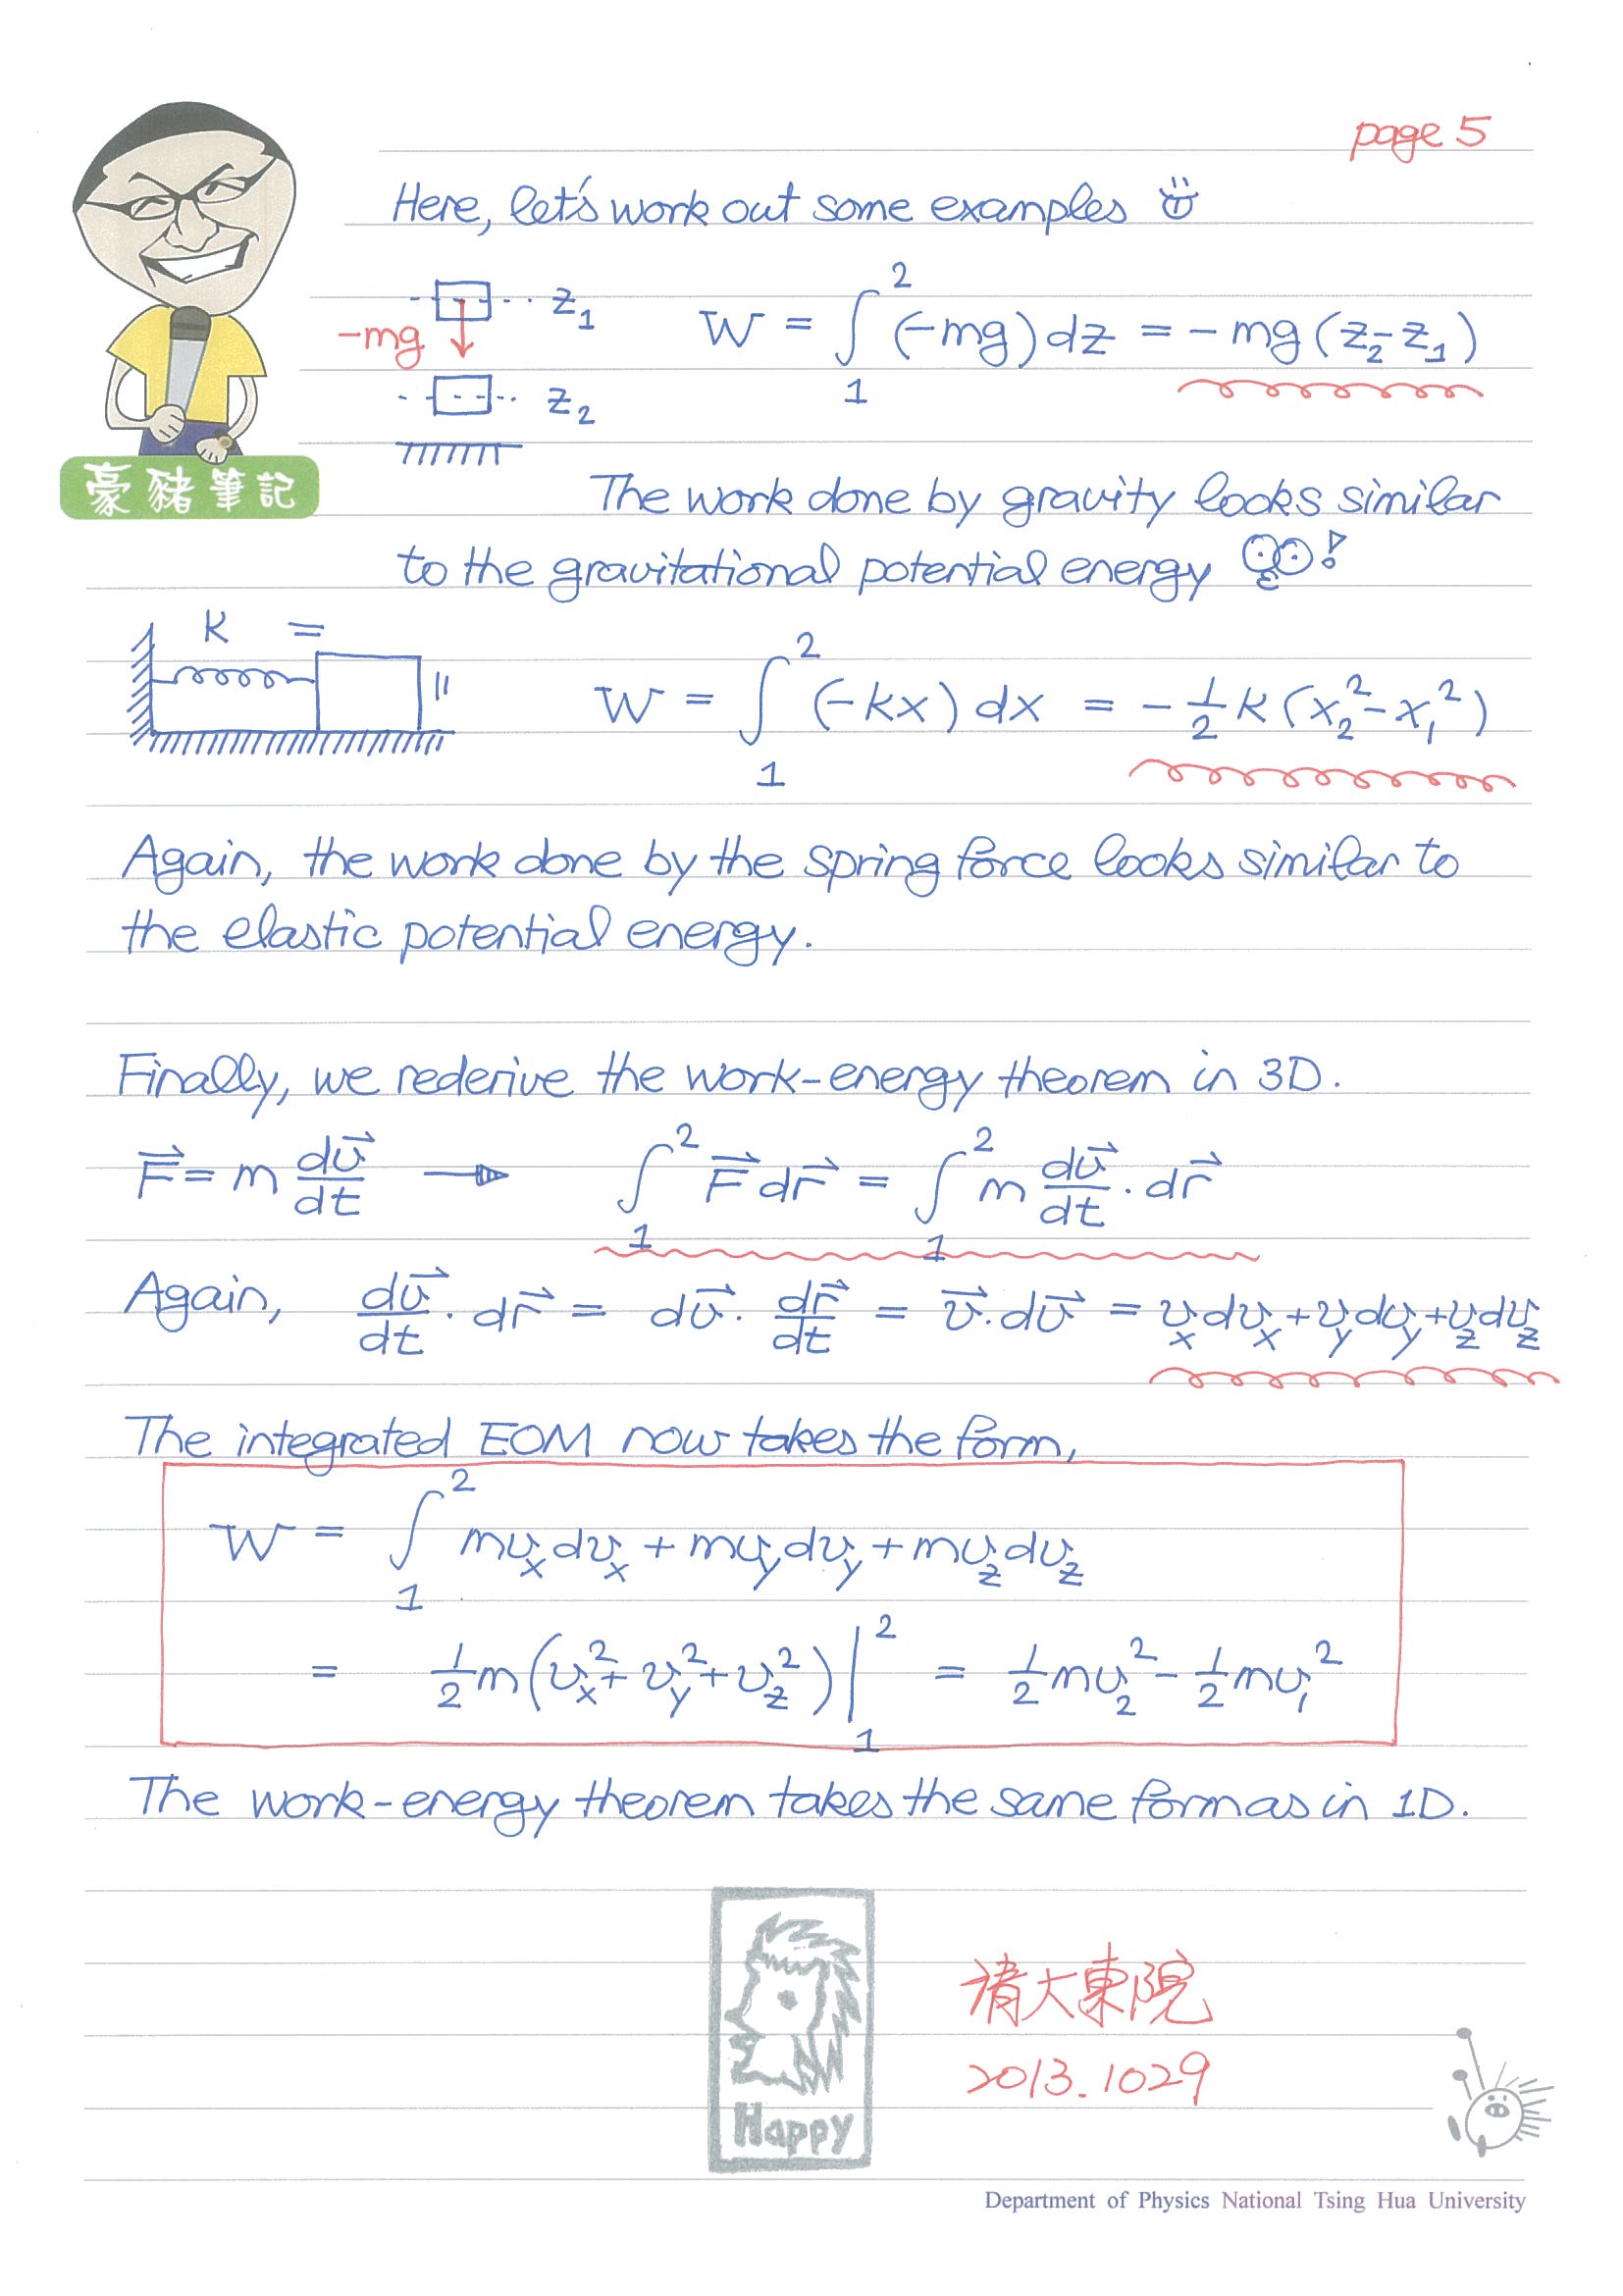 page 5
Here, let's work out some examples
-mg
z₁
z₂
W = ∫₁² (-mg) dz = -mg (z₂-z₁)
豪豬筆記
The work done by gravity looks similar
to the gravitational potential energy !
k
W = ∫₁² (-kx) dx = -½ k (x₂² - x₁²)
Again, the work done by the spring force looks similar to
the elastic potential energy.
Finally, we rederive the work-energy theorem in 3D.
F⃗ = m dv⃗/dt → ∫₁² F⃗ dr⃗ = ∫₁² m dv⃗/dt · dr⃗
Again, dv⃗/dt · dr⃗ = dv⃗ · dr⃗/dt = v⃗ · dv⃗ = vₓdvₓ + v_y dv_y + v_z dv_z
The integrated EOM now takes the form,
W = ∫₁² mvₓdvₓ + mv_y dv_y + mv_z dv_z
= ½ m (vₓ² + v_y² + v_z²) |₁² = ½ mv₂² - ½ mv₁²
The work-energy theorem takes the same form as in 1D.
清大東院
2013.1029
Happy
Department of Physics National Tsing Hua University